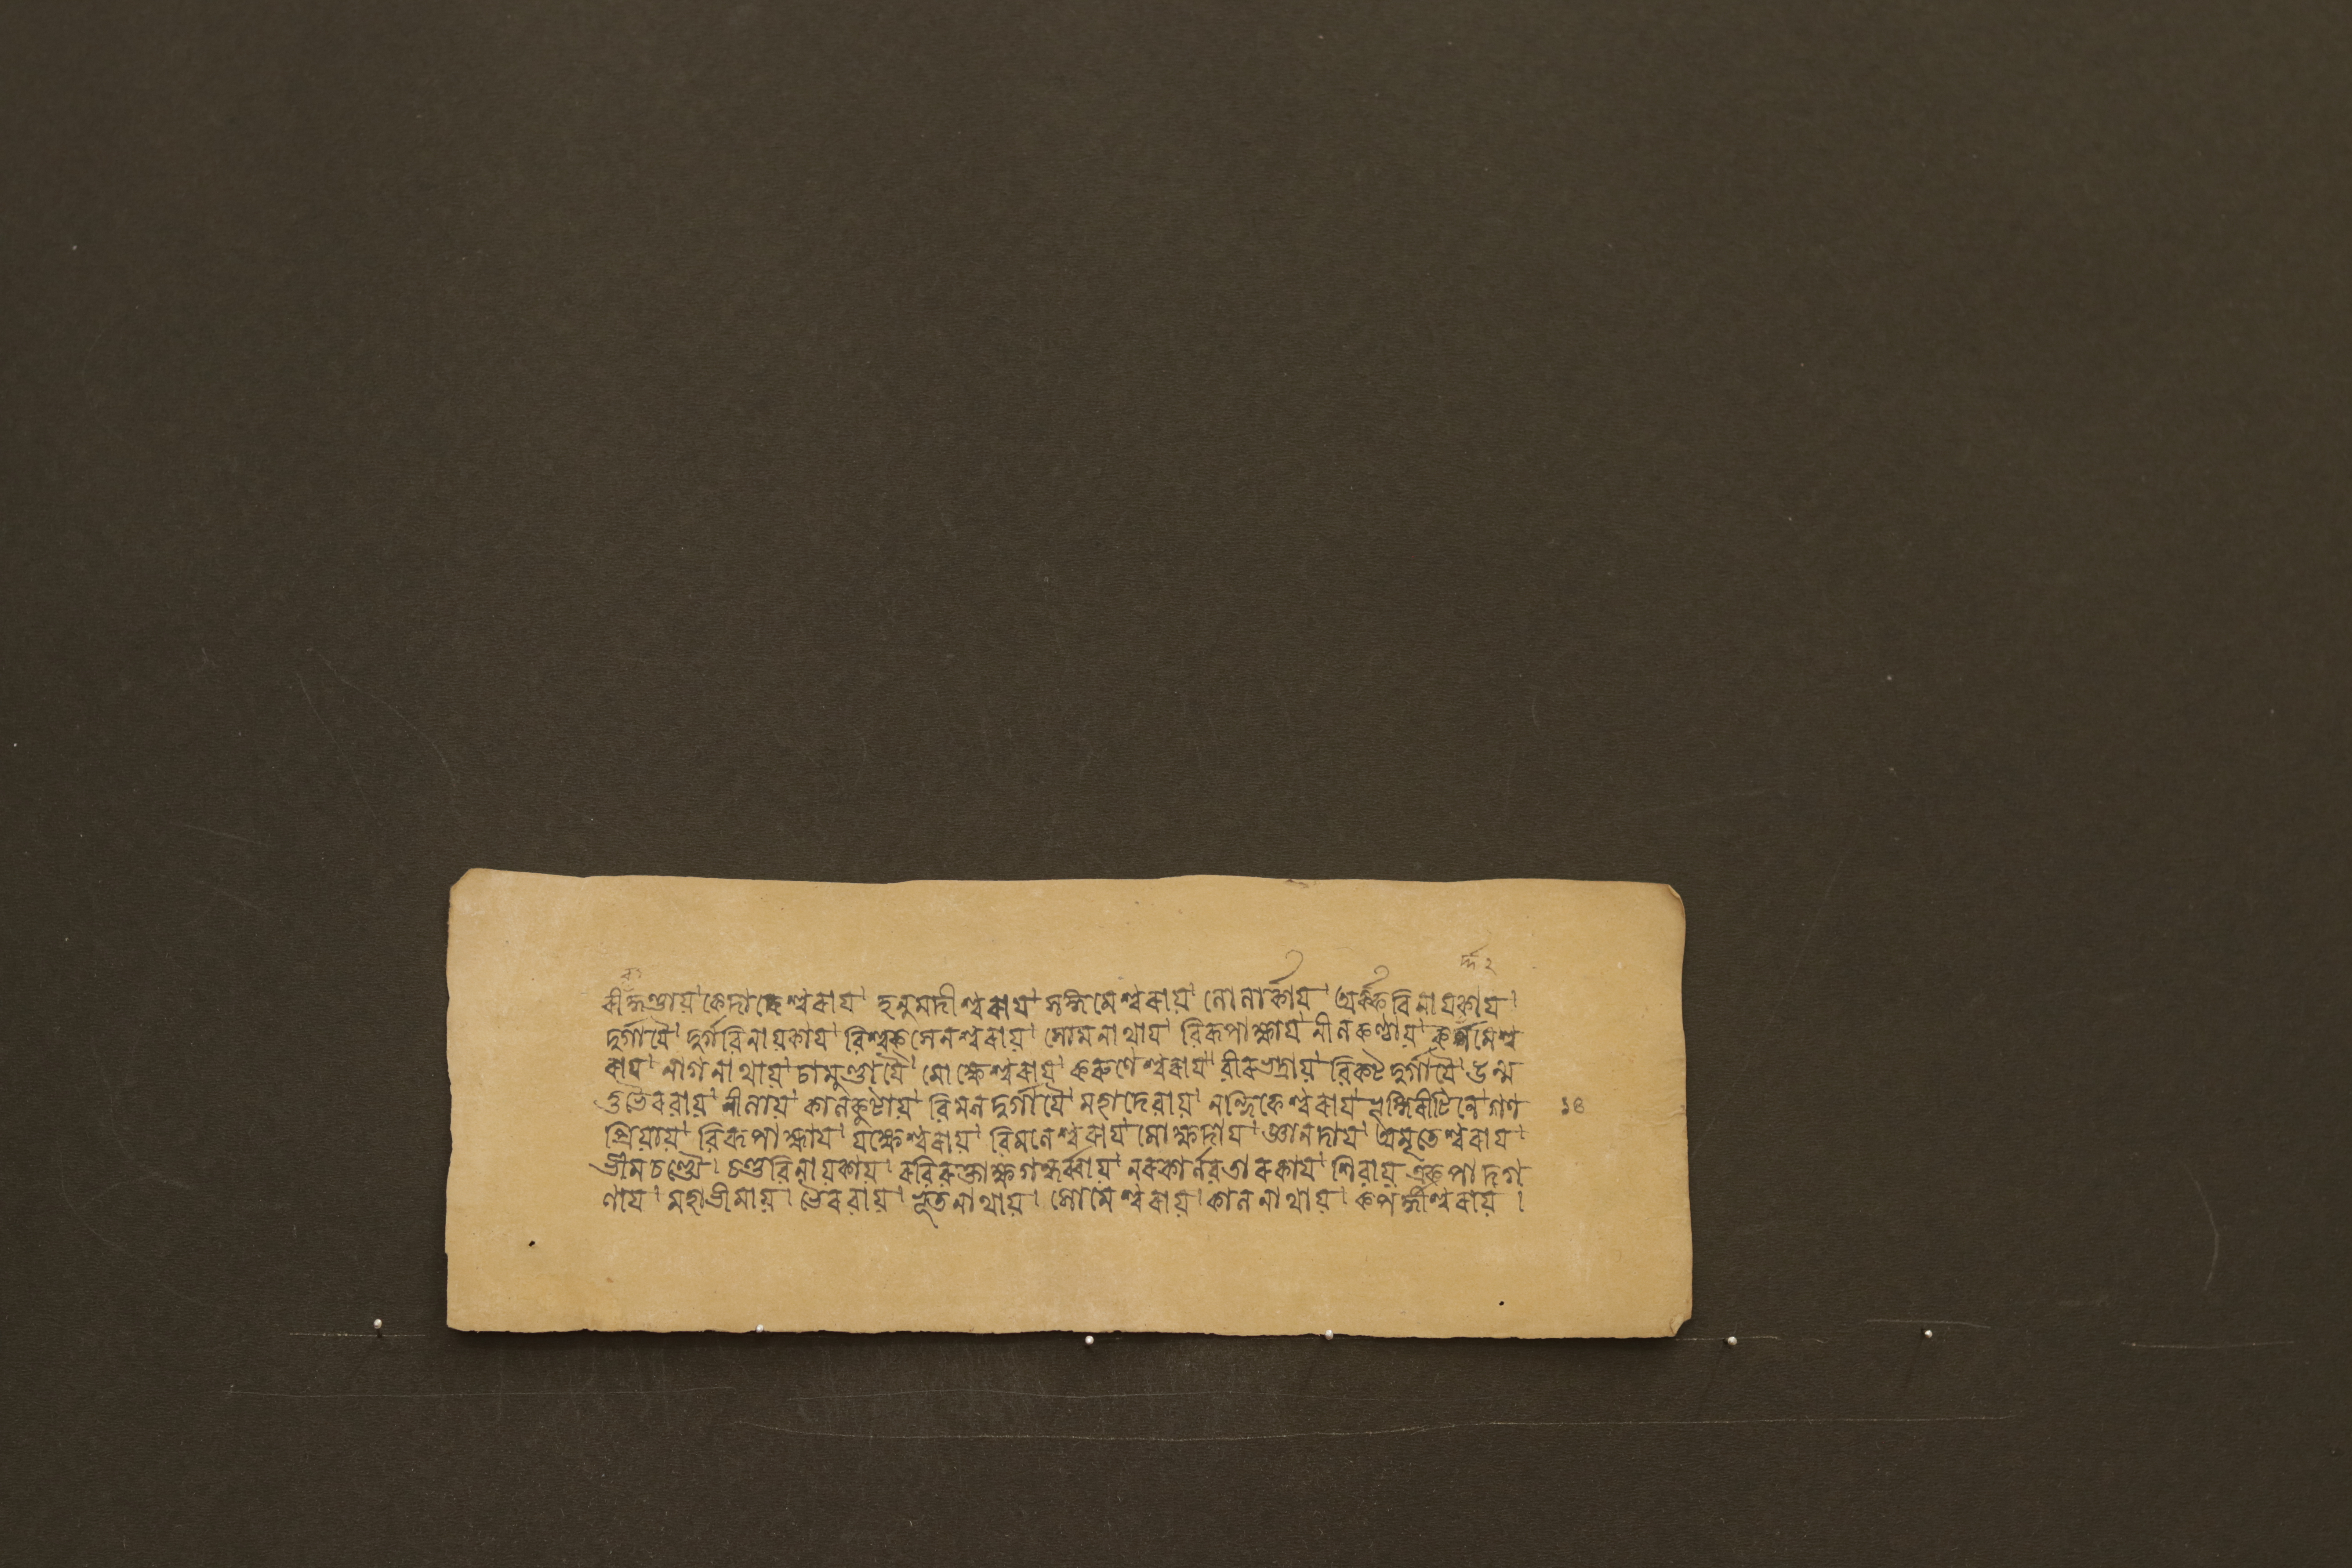 র্দ্দ ২
কেদারেশ্বরায়। হনুমদীশ্বরায়। সঙ্গমেশ্বরায়। লোলার্কায়। অর্কবিনায়কায়।
দুর্গায়ৈ। দুর্গবিনায়কায়। বিশ্বকসেনেশ্বরায়। সোমনাথায়। বিরূপাক্ষায়। নীলকণ্ঠায়। কর্দ্দমেশ্ব
রায়। নাগনাথায়। চামুণ্ডায়ৈ। মোক্ষেশ্বরায়। করুণেশ্বরায়। বীরভদ্রায়। বিকটদুর্গায়ৈ। উন্ম
ত্তভৈরবায়। নীলায়। কালকূটায়। বিমলদুর্গায়ৈ। মহাদেবায়। নন্দিকেশ্বরায়। ভৃঙ্গিরীটিনে। গণ ১৪
প্রিয়ায়। বিরূপাক্ষায়। যক্ষেশ্বরায়। বিমলেশ্বরায়। মোক্ষদায়। জ্ঞানদায়। অমৃতেশ্বরায়।
ভীমচণ্ড্যৈ। চণ্ডবিনায়কায়। রবিরক্তাক্ষগন্ধর্ব্বায়। নরকার্ণবতারকায়। শিবায়। একপাদগ
ণায়। মহাভীমায়। ভৈরবায়। ভূতনাথায়। সোমেশ্বরায়। কালনাথায়। কপর্দ্দীশ্বরায়।